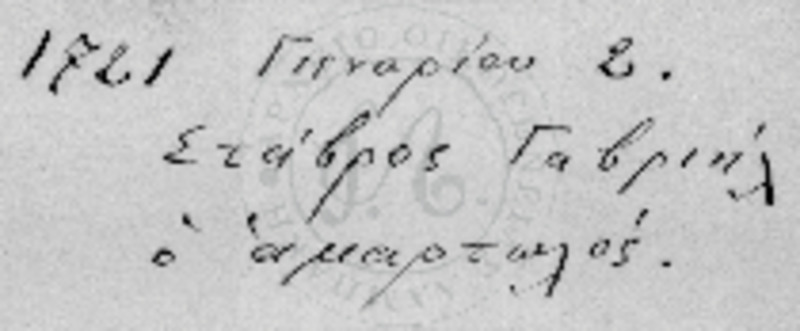 1721 Γηναρίου 2.
Στάβρος Γαβριήλ
ὁ ἁμαρτωλός.